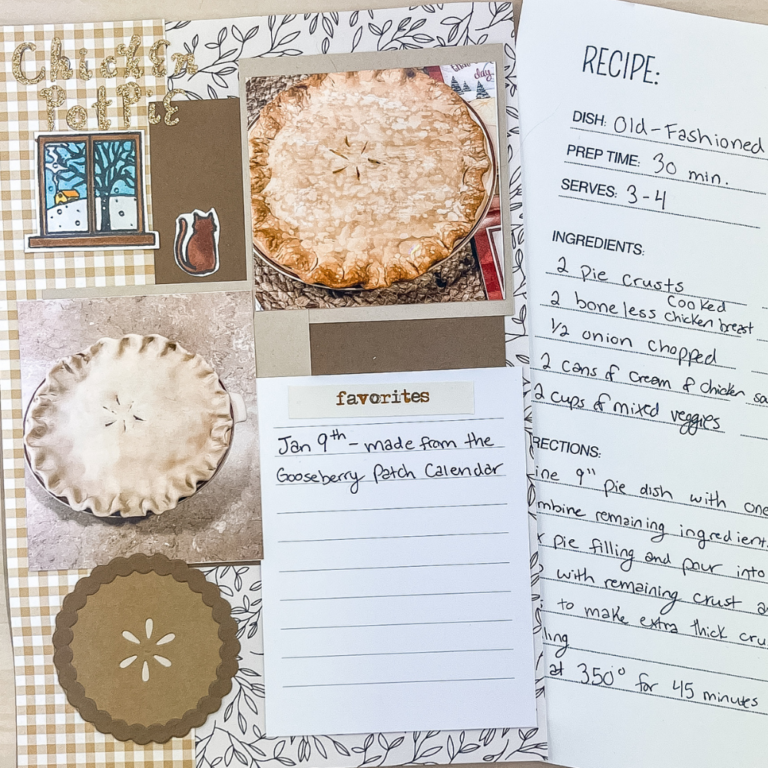 Chicken
Pot Pie
favorites
Jan 9th - made from the
Gooseberry Patch Calendar
RECIPE:
DISH: Old-Fashioned
PREP TIME: 30 min.
SERVES: 3-4
INGREDIENTS:
2 pie crusts
2 boneless cooked chicken breast
1/2 onion chopped
2 cans of cream of chicken
2 cups of mixed veggies
RECTIONS:
ine 9" pie dish with one
mbine remaining ingredient
pie filling and pour into
with remaining crust
to make extra thick cru
ling
at 350° for 45 minutes